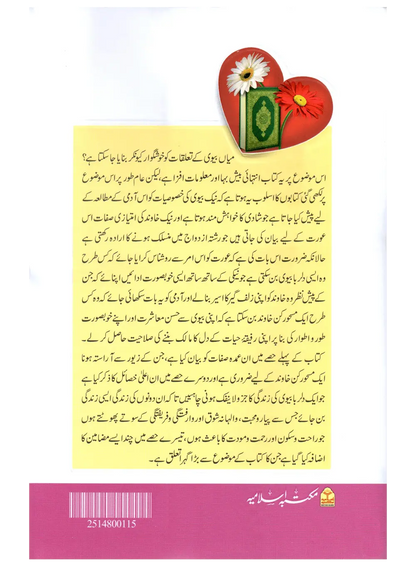 میاں بیوی کے تعلقات کو خوشگوار کیونکر بنایا جا سکتا ہے؟
اس موضوع پر یہ کتاب انتہائی بیش بہا اور معلومات افزا ہے، لیکن عام طور پر اس موضوع
پر لکھی گئی کتابوں کا اسلوب یہ ہوتا ہے کہ نیک بیوی کی خصوصیات کو اس آدمی کے مطالعہ کے
لیے پیش کیا جاتا ہے جو شادی کا خواہش مند ہوتا ہے اور نیک خاوند کی امتیازی صفات اس
عورت کے لیے بیان کی جاتی ہیں جو رشتہ ازدواج میں منسلک ہونے کا ارادہ رکھتی ہے
حالانکہ ضرورت اس بات کی ہے کہ عورت کو اس امر سے روشناس کرایا جائے کہ کس طرح
وہ ایسی دلربا بیوی بن سکتی ہے جو نیکی کے ساتھ ساتھ ایسی خوبصورت ادائیں اپنائے کہ جن کے
پیش نظر وہ خاوند کو اپنی زلف گیر کا اسیر بنالے اور آدمی کو یہ بات سکھائی جائے کہ وہ کس
طرح ایک مسحور کن خاوند بن سکتا ہے کہ اپنی بیوی سے حسن معاشرت اور اپنے خوبصورت
طور و اطوار کی بنا پر اپنی رفیقۂ حیات کے دل کا مالک بننے کی صلاحیت حاصل کر لے۔
کتاب کے پہلے حصے میں ان عمدہ صفات کو بیان کیا ہے، جن کے زیور سے آراستہ ہونا
ایک مسحور کن خاوند کے لیے ضروری ہے اور دوسرے حصے میں ان اعلیٰ خصائل کا ذکر کیا ہے
جو ایک دلربا بیوی کی زندگی کا جزو لاینفک ہونی چاہییں تاکہ ان دونوں کی زندگی ایسی زندگی
بن جائے جس سے پیار و محبت، والہانہ شوق اور وارفتگی و فریفتگی کے سوتے پھوٹتے ہوں
جو راحت و سکون اور رحمت و مودت کا باعث ہوں، تیسرے حصے میں چند ایسے مضامین کا
اضافہ کیا گیا ہے جن کا کتاب کے موضوع سے بڑا گہرا تعلق ہے۔
مکتبہ اسلامیہ
2514800115